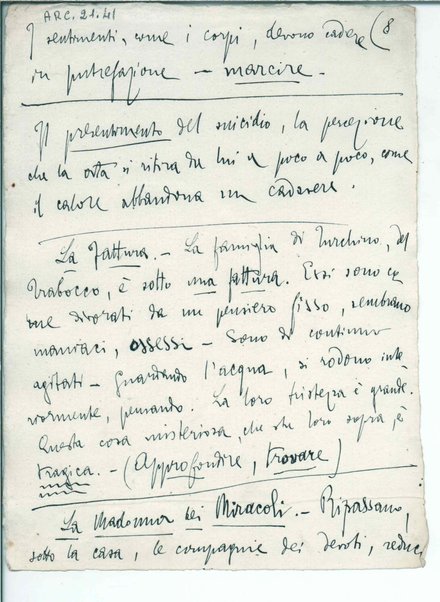 ARC. 21.41
I sentimenti, come i corpi, devono cadere (8
in putrefazione – marcire.
Il presentimento del suicidio, la percezione
che la vita si ritira da lui a poco a poco, come
il calore abbandona un cadavere.
La Fattura. – La famiglia di Turchino, del
Trabocco, è sotto una fattura. Essi sono co
me divorati da un pensiero fisso, sembrano
maniaci, ossessi – Sono di continuo
agitati – Guardando l'acqua, si rodono inte
riormente, penando. La loro tristezza è grande.
Questa cosa misteriosa, che sta loro sopra, è
tragica. – (Approfondire, trovare)
La Madonna dei Miracoli. – Ripassano,
sotto la casa, le compagnie dei devoti, reduci